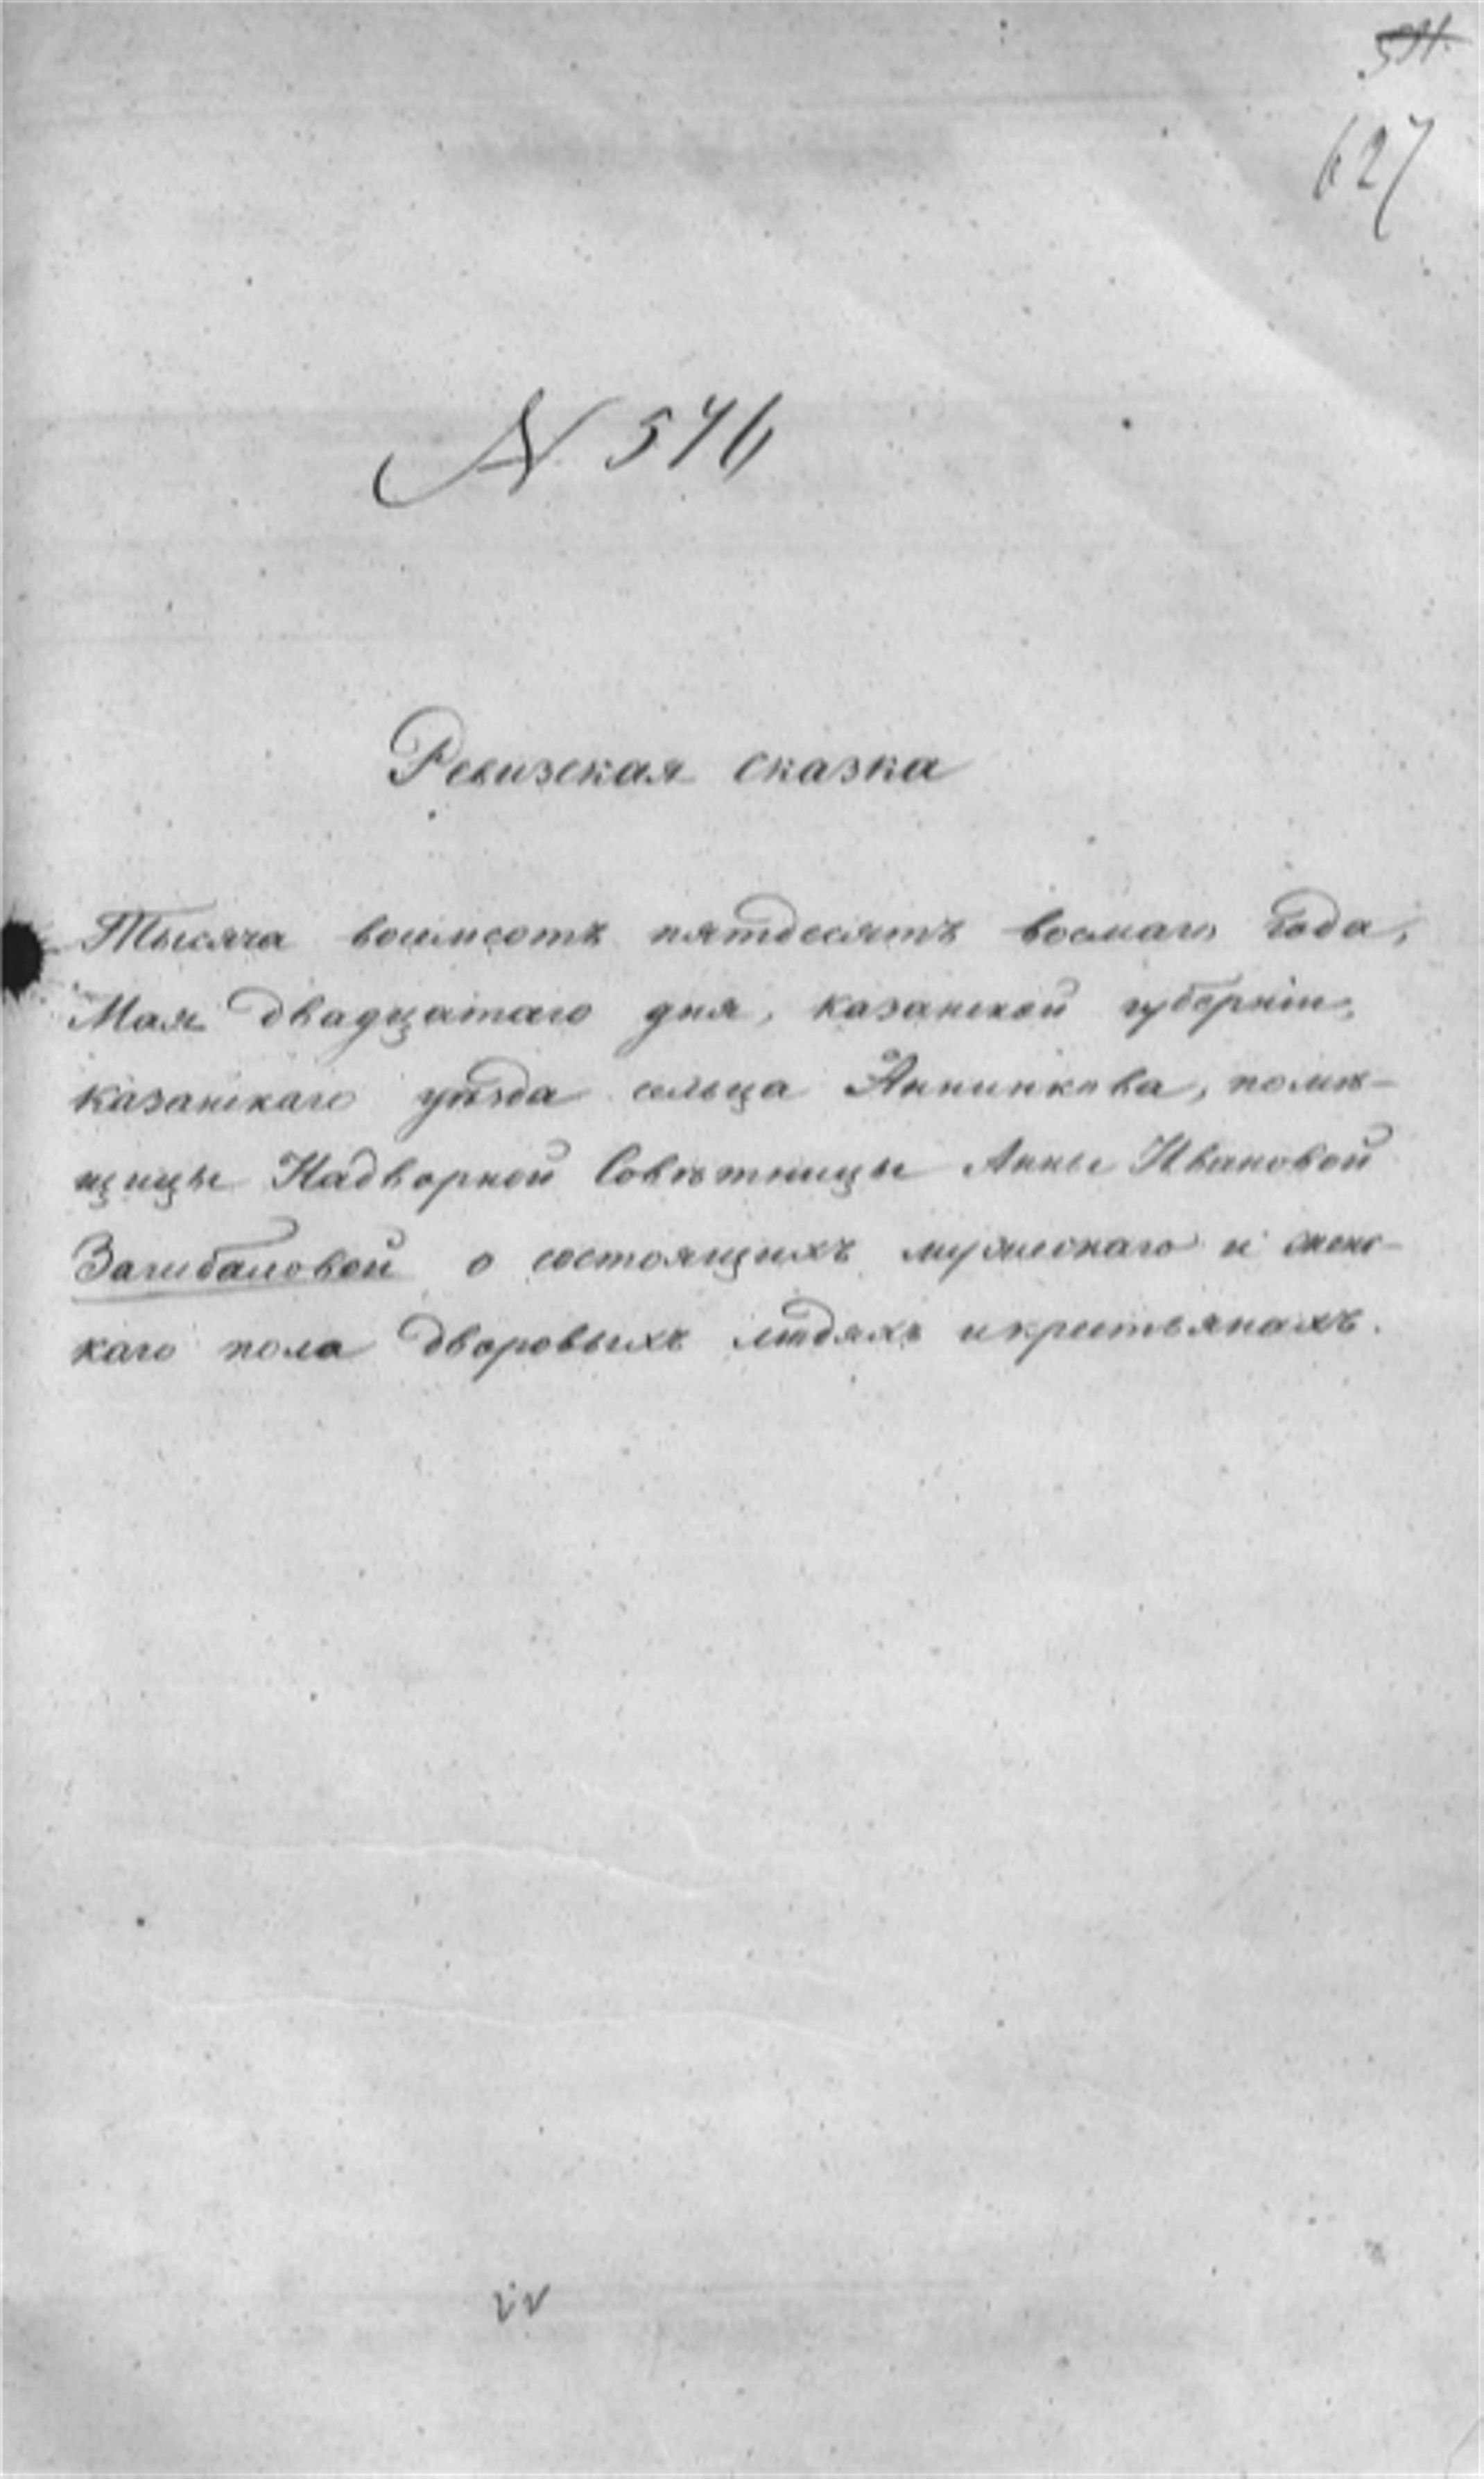 627
N 546
Ревизская сказка
Тысяча восемсотъ пятдесятъ восмаго года,
Мая двадцатаго дня, казанской губерніи,
казанскаго уѣзда сельца Аннинкова, помѣ-
щицы Надворной Совѣтницы Анны Ивановой
о состоящихъ мужескаго и женс-
каго пола дворовыхъ людяхъ и крестьянахъ.